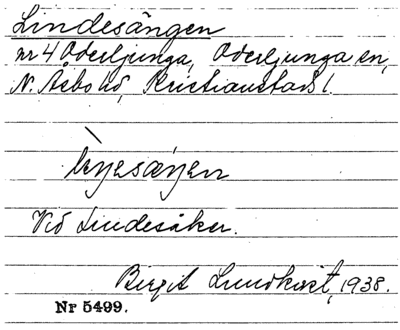 Lindesängen
nr 4 Oderljunga, Oderljunga sn,
N. Åsbo hd, Kristianstads l.
Vid Lindesåker.
Birgit Lundkvist, 1938.
Nr 5499.